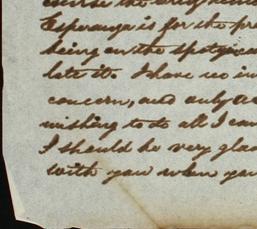 course the only
Esperanza is for the pre
being on the spot you ca
late it. I have no in
concern, and only ac
wishing to do all I can
I should be very glad
with you when you